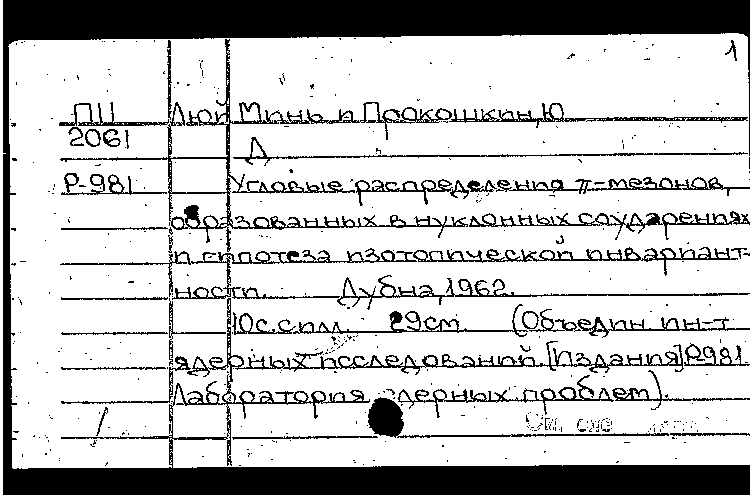 1
ПЦ Люй Минь и Прокошкин,Ю
2061 Д
P-981 Угловые распределения π-мезонов,
образованных в нуклонных соударениях
и гипотеза изотопической инвариант-
ности. Дубна,1962.
10с.силл. 29см. (Объедин ин-т
ядерных исследований.[Издания]P981
Лаборатория ядерных проблем).
См. СЛС